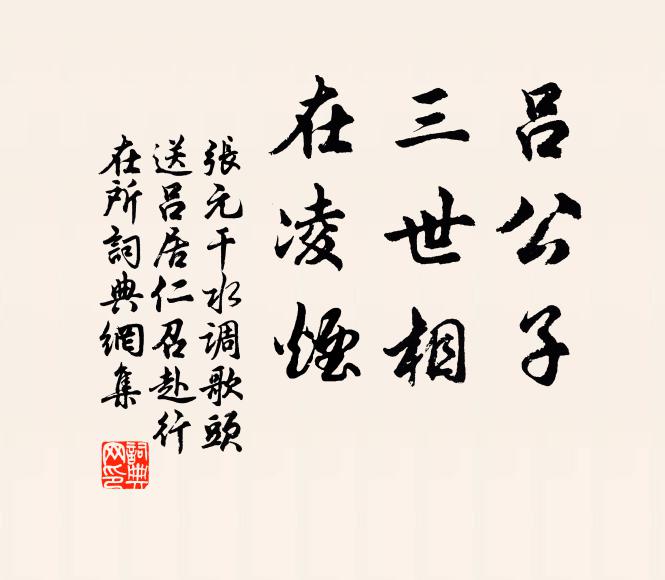 吕公子
三世相
在凌煙
張元干水调歌頭
送吕居仁召赴行
在所詞典網集
詞典
网印